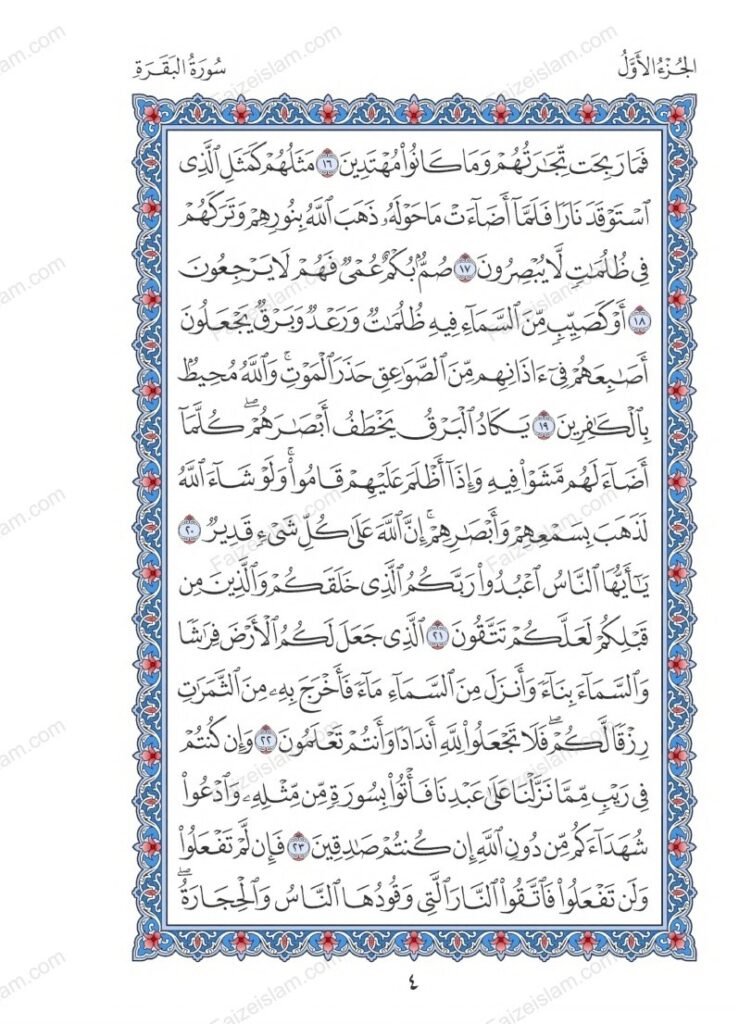 الجُزْءُ الأَوَّلُ
سُورَةُ البَقَرَةِ
فَمَا رَبِحَت تِّجَٰرَتُهُمْ وَمَا كَانُوا۟ مُهْتَدِينَ ١٦ مَثَلُهُمْ كَمَثَلِ ٱلَّذِى
ٱسْتَوْقَدَ نَارًا فَلَمَّآ أَضَآءَتْ مَا حَوْلَهُۥ ذَهَبَ ٱللَّهُ بِنُورِهِمْ وَتَرَكَهُمْ
فِى ظُلُمَاتٍ لَّا يُبْصِرُونَ ١٧ صُمٌّۢ بُكْمٌ عُمْىٌ فَهُمْ لَا يَرْجِعُونَ
١٨ أَوْ كَصَيِّبٍ مِّنَ ٱلسَّمَآءِ فِيهِ ظُلُمَاتٌ وَرَعْدٌ وَبَرْقٌ يَجْعَلُونَ
أَصَٰبِعَهُمْ فِىٓ ءَاذَانِهِم مِّنَ ٱلصَّوَاعِقِ حَذَرَ ٱلْمَوْتِ ۚ وَٱللَّهُ مُحِيطٌۢ
بِٱلْكَافِرِينَ ١٩ يَكَادُ ٱلْبَرْقُ يَخْطَفُ أَبْصَٰرَهُمْ ۖ كُلَّمَآ
أَضَآءَ لَهُم مَّشَوْا۟ فِيهِ وَإِذَآ أَظْلَمَ عَلَيْهِمْ قَامُوا۟ ۚ وَلَوْ شَآءَ ٱللَّهُ
لَذَهَبَ بِسَمْعِهِمْ وَأَبْصَٰرِهِمْ ۚ إِنَّ ٱللَّهَ عَلَىٰ كُلِّ شَىْءٍ قَدِيرٌ ٢٠
يَٰٓأَيُّهَا ٱلنَّاسُ ٱعْبُدُوا۟ رَبَّكُمُ ٱلَّذِى خَلَقَكُمْ وَٱلَّذِينَ مِن
قَبْلِكُمْ لَعَلَّكُمْ تَتَّقُونَ ٢١ ٱلَّذِى جَعَلَ لَكُمُ ٱلْأَرْضَ فِرَٰشًا
وَٱلسَّمَآءَ بِنَآءً وَأَنزَلَ مِنَ ٱلسَّمَآءِ مَآءً فَأَخْرَجَ بِهِۦ مِنَ ٱلثَّمَرَٰتِ
رِزْقًا لَّكُمْ ۖ فَلَا تَجْعَلُوا۟ لِلَّهِ أَندَادًا وَأَنتُمْ تَعْلَمُونَ ٢٢ وَإِن كُنتُمْ
فِى رَيْبٍ مِّمَّا نَزَّلْنَا عَلَىٰ عَبْدِنَا فَأْتُوا۟ بِسُورَةٍ مِّن مِّثْلِهِۦ وَٱدْعُوا۟
شُهَدَآءَكُم مِّن دُونِ ٱللَّهِ إِن كُنتُمْ صَٰدِقِينَ ٢٣ فَإِن لَّمْ تَفْعَلُوا۟
وَلَن تَفْعَلُوا۟ فَٱتَّقُوا۟ ٱلنَّارَ ٱلَّتِى وَقُودُهَا ٱلنَّاسُ وَٱلْحِجَارَةُ ۖ
٤
Faizeislam.com